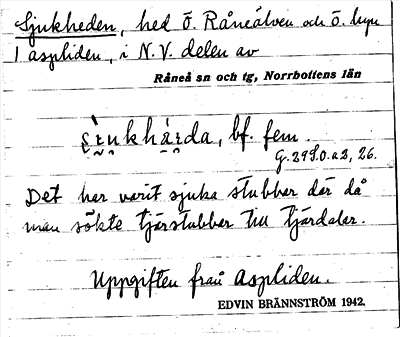 Sjukheden, hed ö. Råneälven och ö. byn
1 aspliden, i N.V. delen av
Råneå sn och tg, Norrbottens län
bf. fem.
G. 295.0. a2, 26.
Det har varit sjuka stubbar där då
man sökte tjärstubbar till tjärdalar.
Uppgiften från Aspliden.
EDVIN BRÄNNSTRÖM 1942.